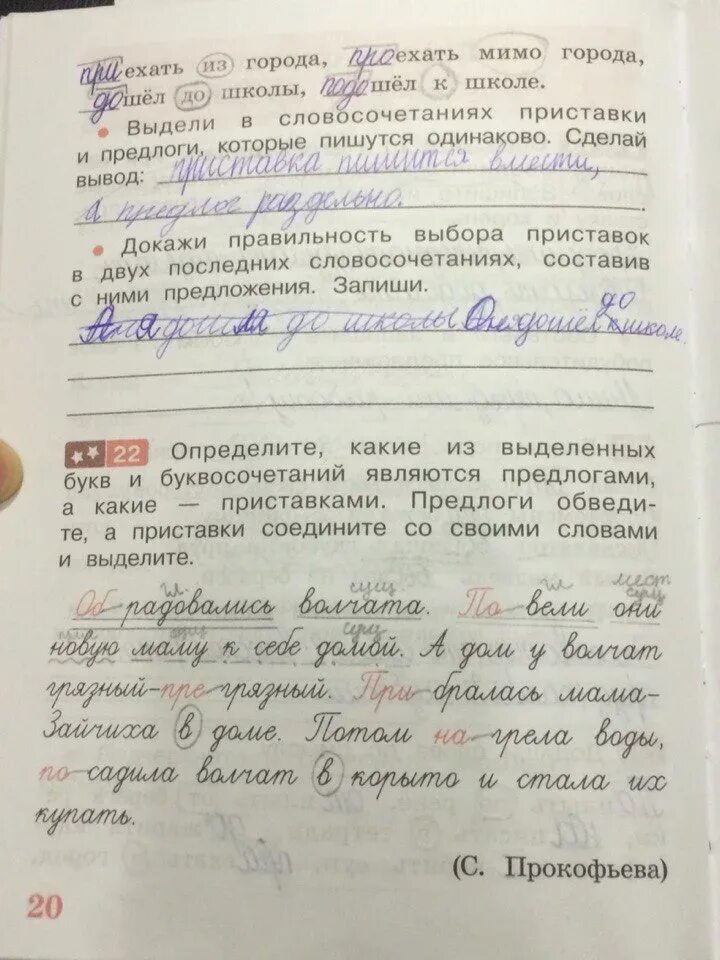 приехать из города, проехать мимо города,
дошёл до школы, подошёл к школе.
• Выдели в словосочетаниях приставки
и предлоги, которые пишутся одинаково. Сделай
вывод: приставка пишится вмести,
а предлог раздельно.
• Докажи правильность выбора приставок
в двух последних словосочетаниях, составив
с ними предложения. Запиши.
до
Аня дошла до школы дошёл школе.
22 Определите, какие из выделенных
букв и буквосочетаний являются предлогами,
а какие — приставками. Предлоги обведи-
те, а приставки соедините со своими словами
и выделите.
гл. сущ гл мест
сущ
Об радовались волчата. По вели они
сущ
новую маму к себе домой. А дом у волчат
грязный-пре грязный. При бралась мама-
Зайчиха в доме. Потом на грела воды,
по садила волчат в корыто и стала их
купать.
(С. Прокофьева)
20